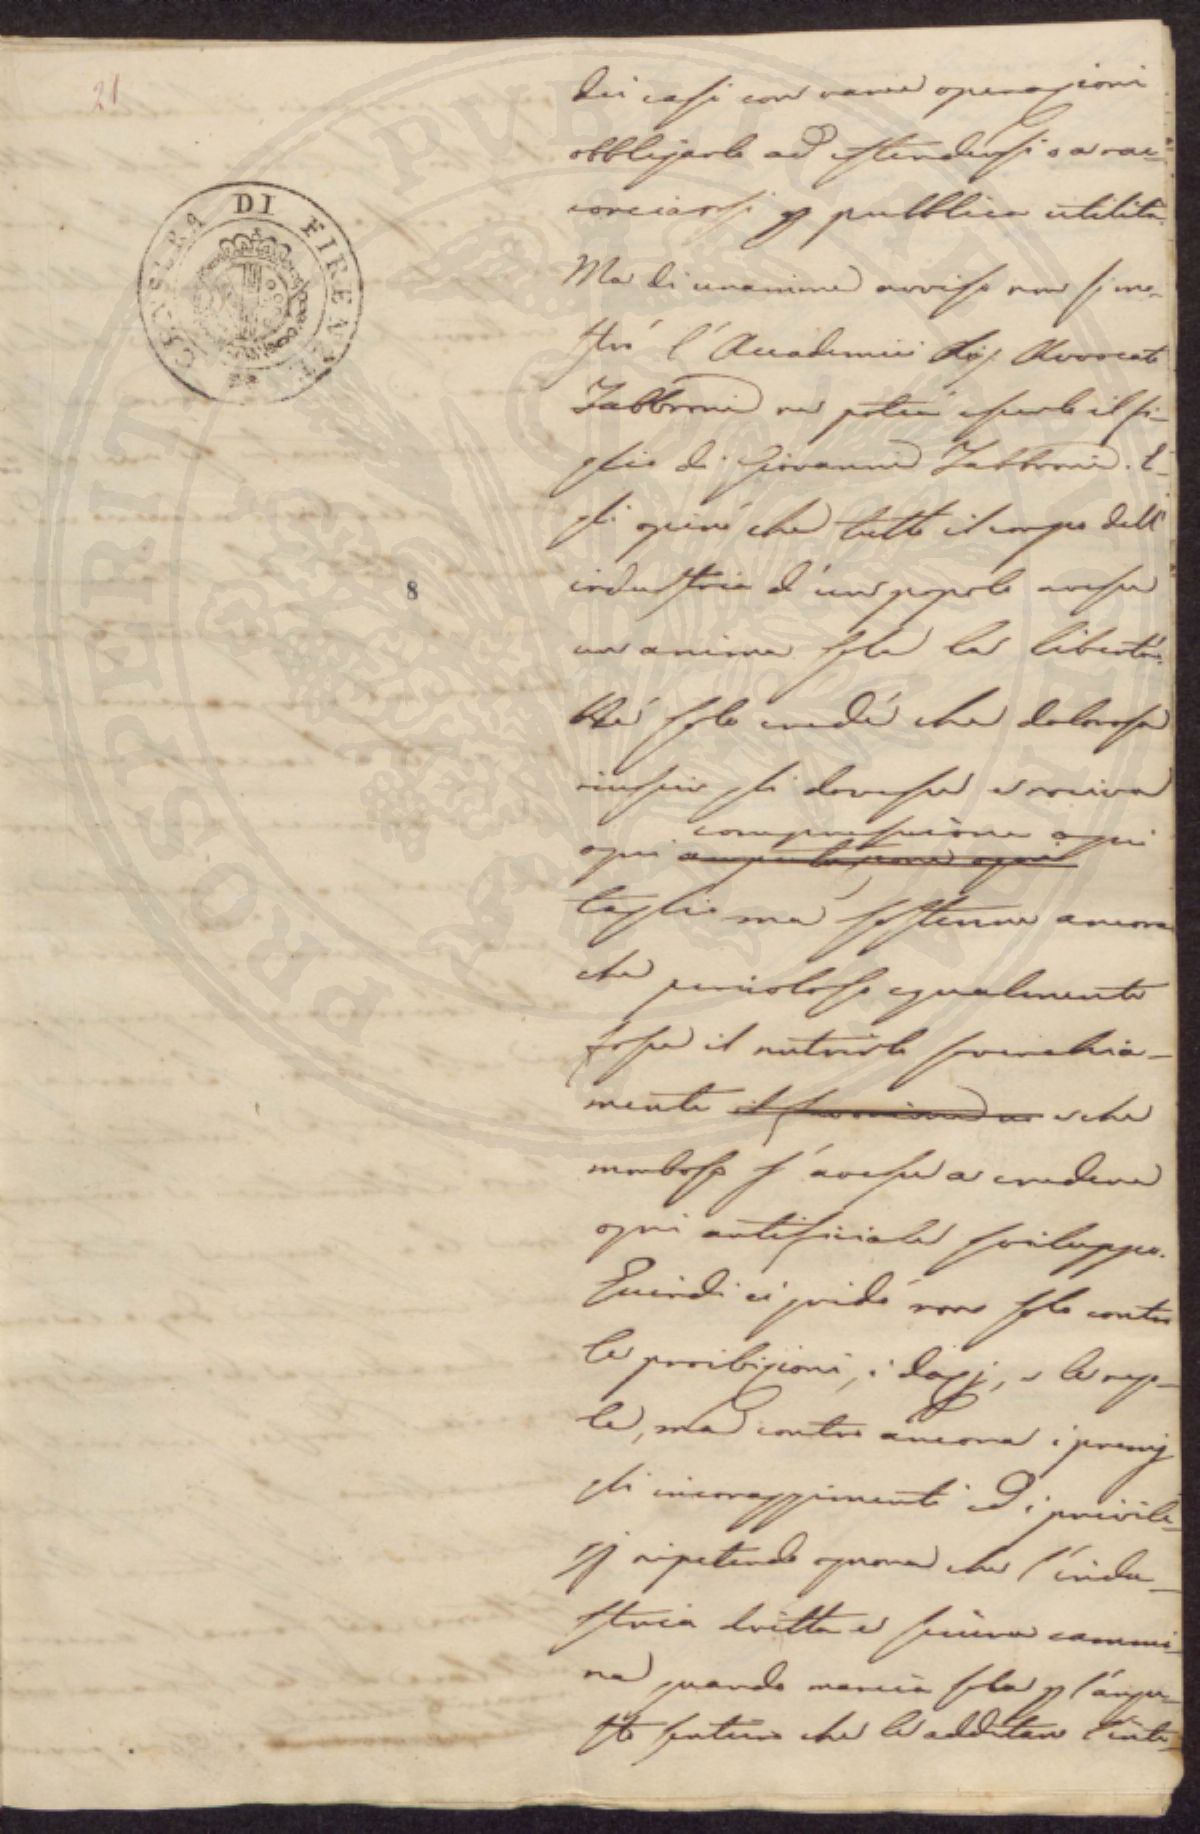 21
CENSURA DI FIRENZE
8
dei casi con varie operazioni
obbligarlo ad estendersi o a rac-
corciarsi p pubblica utilità.
Ma di unanime avviso non si mo-
strò l'Accademico Sig. Avvocato
Fabbroni nè potea esserlo il fi-
glio di Giovanni Fabbroni. E-
gli opinò che tutto il corpo dell'
industria d'un popolo avesse
un anima sola la libertà.
Nè solo credè che dolorosa
riuscir gli dovesse e nociva
compressione ogni
ogni amputazione ogni
taglio ma sostenne ancora
che pericoloso egualmente
fosse il nutrirlo soverchia-
mente il e che
morboso s'avesse a credere
ogni artificiale sviluppo.
Quindi ei gridò non solo contro
le proibizioni, i dazj, e le rego-
le, ma contro ancora i premj
gli incoraggimenti ed i privile-
gj ripetendo ognora che l'indu-
stria dritta e sicura cammi-
na quando marcia sola p l'angu-
sto sentiero che le additan l'inte-
PROSPERITATI PUBLICAE AUGENDAE